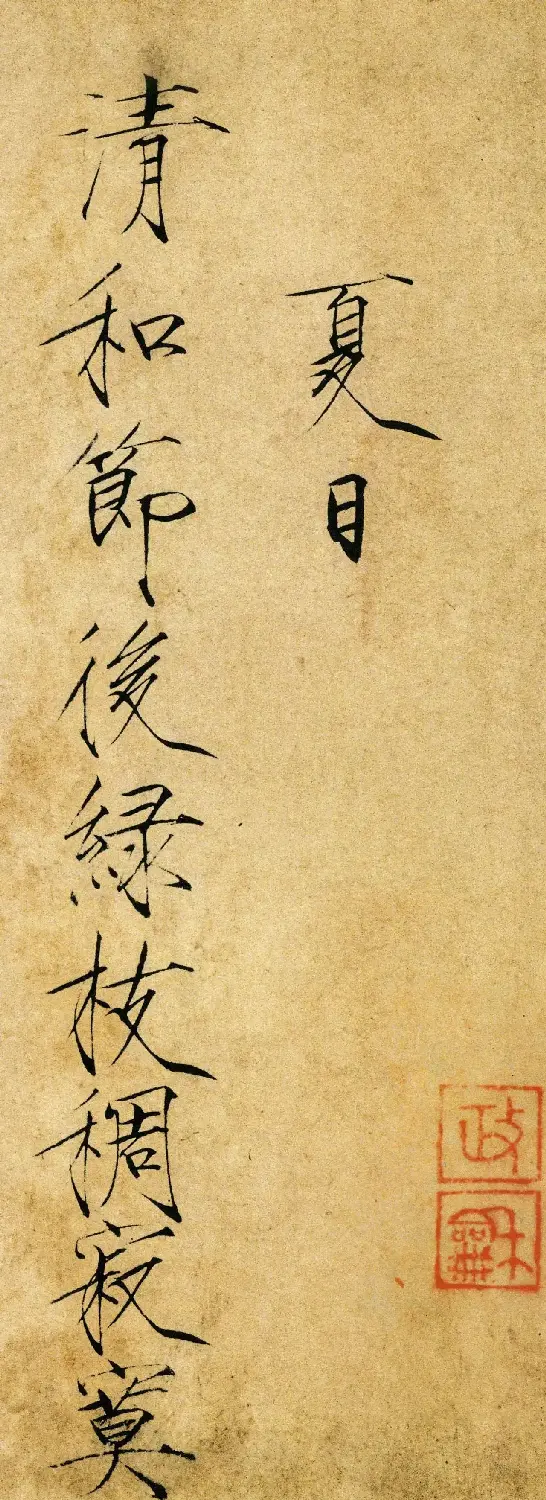 夏日
清和節後綠枝稠寂寞
政
龢